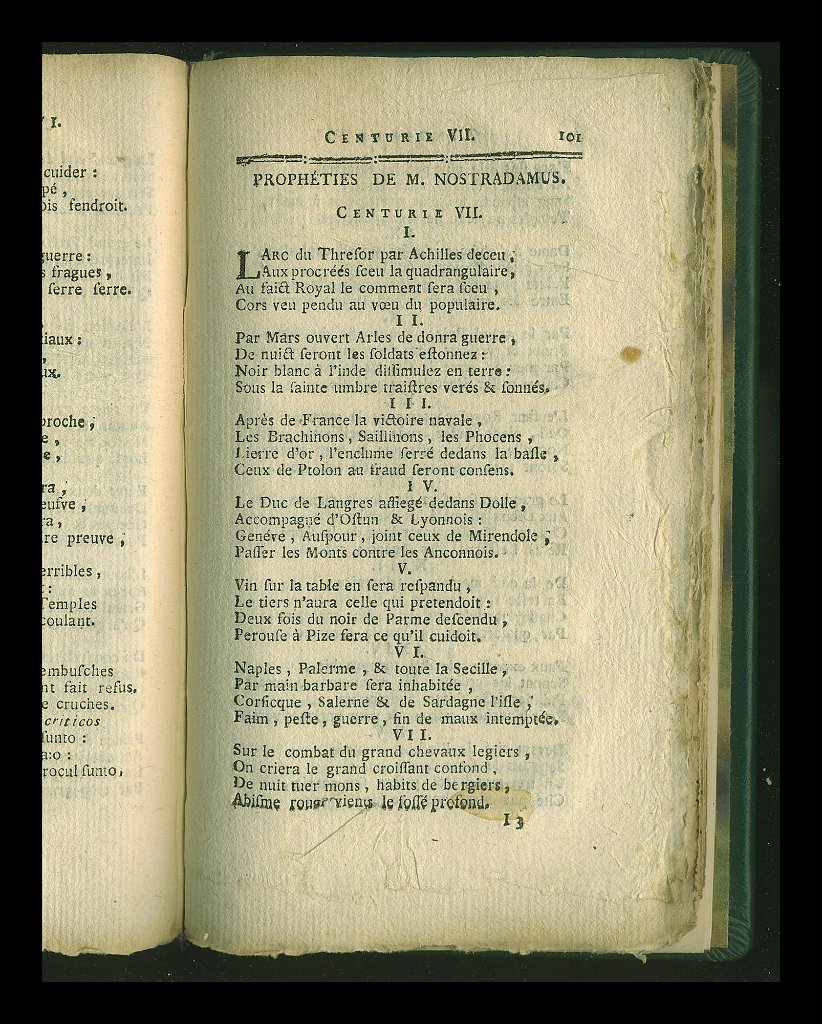 I.
cuider :
pé ,
ois fendroit.
guerre :
s fragues ,
ferre ferre.
iaux :
,
ux.
proche ,
e ,
e ,
ra ,
eufve ,
ra ,
ire preuve ,
erribles ,
:
Temples
coulant.
embuſches
nt fait refus.
e cruches.
criticos
ſunto :
a:o :
rocul ſunto,
CENTURIE VII. 101
PROPHÉTIES DE M. NOSTRADAMUS.
CENTURIE VII.
I.
LARC du Threſor par Achilles deceu ,
Aux procréés ſceu la quadrangulaire,
Au faict Royal le comment ſera ſceu ,
Cors veu pendu au vœu du populaire.
II.
Par Mars ouvert Arles de donra guerre ,
De nuict ſeront les ſoldats eſtonnez :
Noir blanc à l'inde diſſimulez en terre :
Sous la ſainte umbre traiſtres verés & ſonnés.
III.
Après de France la victoire navale ,
Les Brachinons , Saillinons , les Phocens ,
Lierre d'or , l'enclume ſerré dedans la baſle ,
Ceux de Ptolon au fraud ſeront conſens.
IV.
Le Duc de Langres aſſiegé dedans Dolle ,
Accompagné d'Oſtun & Lyonnois :
Genéve , Auſpour , joint ceux de Mirendole ,
Paſſer les Monts contre les Anconnois.
V.
Vin ſur la table en ſera reſpandu ,
Le tiers n'aura celle qui pretendoit :
Deux fois du noir de Parme deſcendu ,
Perouſe à Pize fera ce qu'il cuidoit.
VI.
Naples , Palerme , & toute la Secille ,
Par main barbare ſera inhabitée ,
Corſicque , Salerne & de Sardagne l'iſle ,
Faim , peſte , guerre , fin de maux intemptée.
VII.
Sur le combat du grand chevaux legiers ,
On criera le grand croiſſant confond ,
De nuit tuer mons , habits de bergiers ,
Abiſme vients le foſſé profond.
I 3